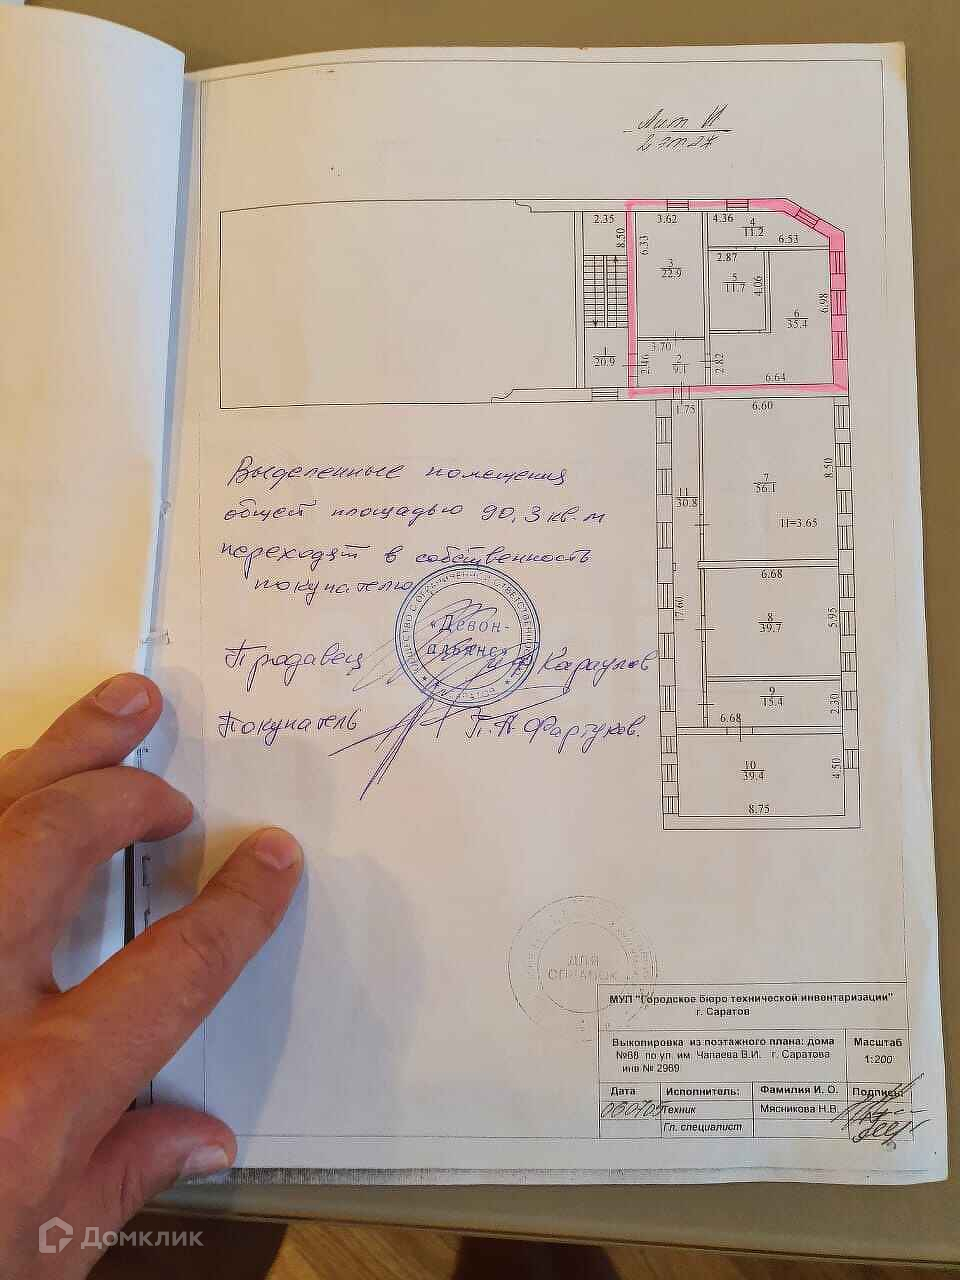 Лит И
2 этаж
2.35
3.62
4.36
4
11.2
6.53
8.50
6.33
3
22.9
2.87
5
11.7
4.06
6
35.4
6.98
1
20.9
3.70
2.46
2
9.1
2.82
6.64
1.75
6.60
7
56.1
8.50
11
30.8
H=3.65
6.68
17.60
8
39.7
5.95
9
15.4
2.30
6.68
10
39.4
4.50
8.75
Выделенные помещения
общей площадью 90,3 кв.м
переходят в собственность
покупателю
«Девон-
альянс»
Продавец Караулов
Покупатель П.А. Фартуков.
ДЛЯ
СПРАВОК
МУП "Городское бюро технической инвентаризации"
г. Саратов
Выкопировка из поэтажного плана: дома
№68 по ул. им. Чапаева В.И. г. Саратова
инв № 2969
Масштаб
1:200
Дата Исполнитель: Фамилия И. О. Подпись:
Техник Мясникова Н.В.
Гл. специалист
Домклик